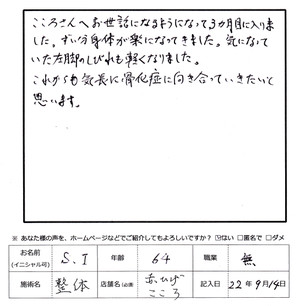 こころさんへお世話になるようになって3カ月目に入りま
した。ずい分身体が楽になってきました。気になって
いた左脚のしびれも軽くなりました。
これからも気長に骨化症に向き合っていきたいと
思います。
※ あなた様の声を、ホームページなどでご紹介してもよろしいですか？ はい □匿名で □ダメ
お名前 (イニシャル可) S.I 年齢 64 職業 無
施術名 整体 店舗名(必須) 赤ひげ こころ 記入日 22年9月14日